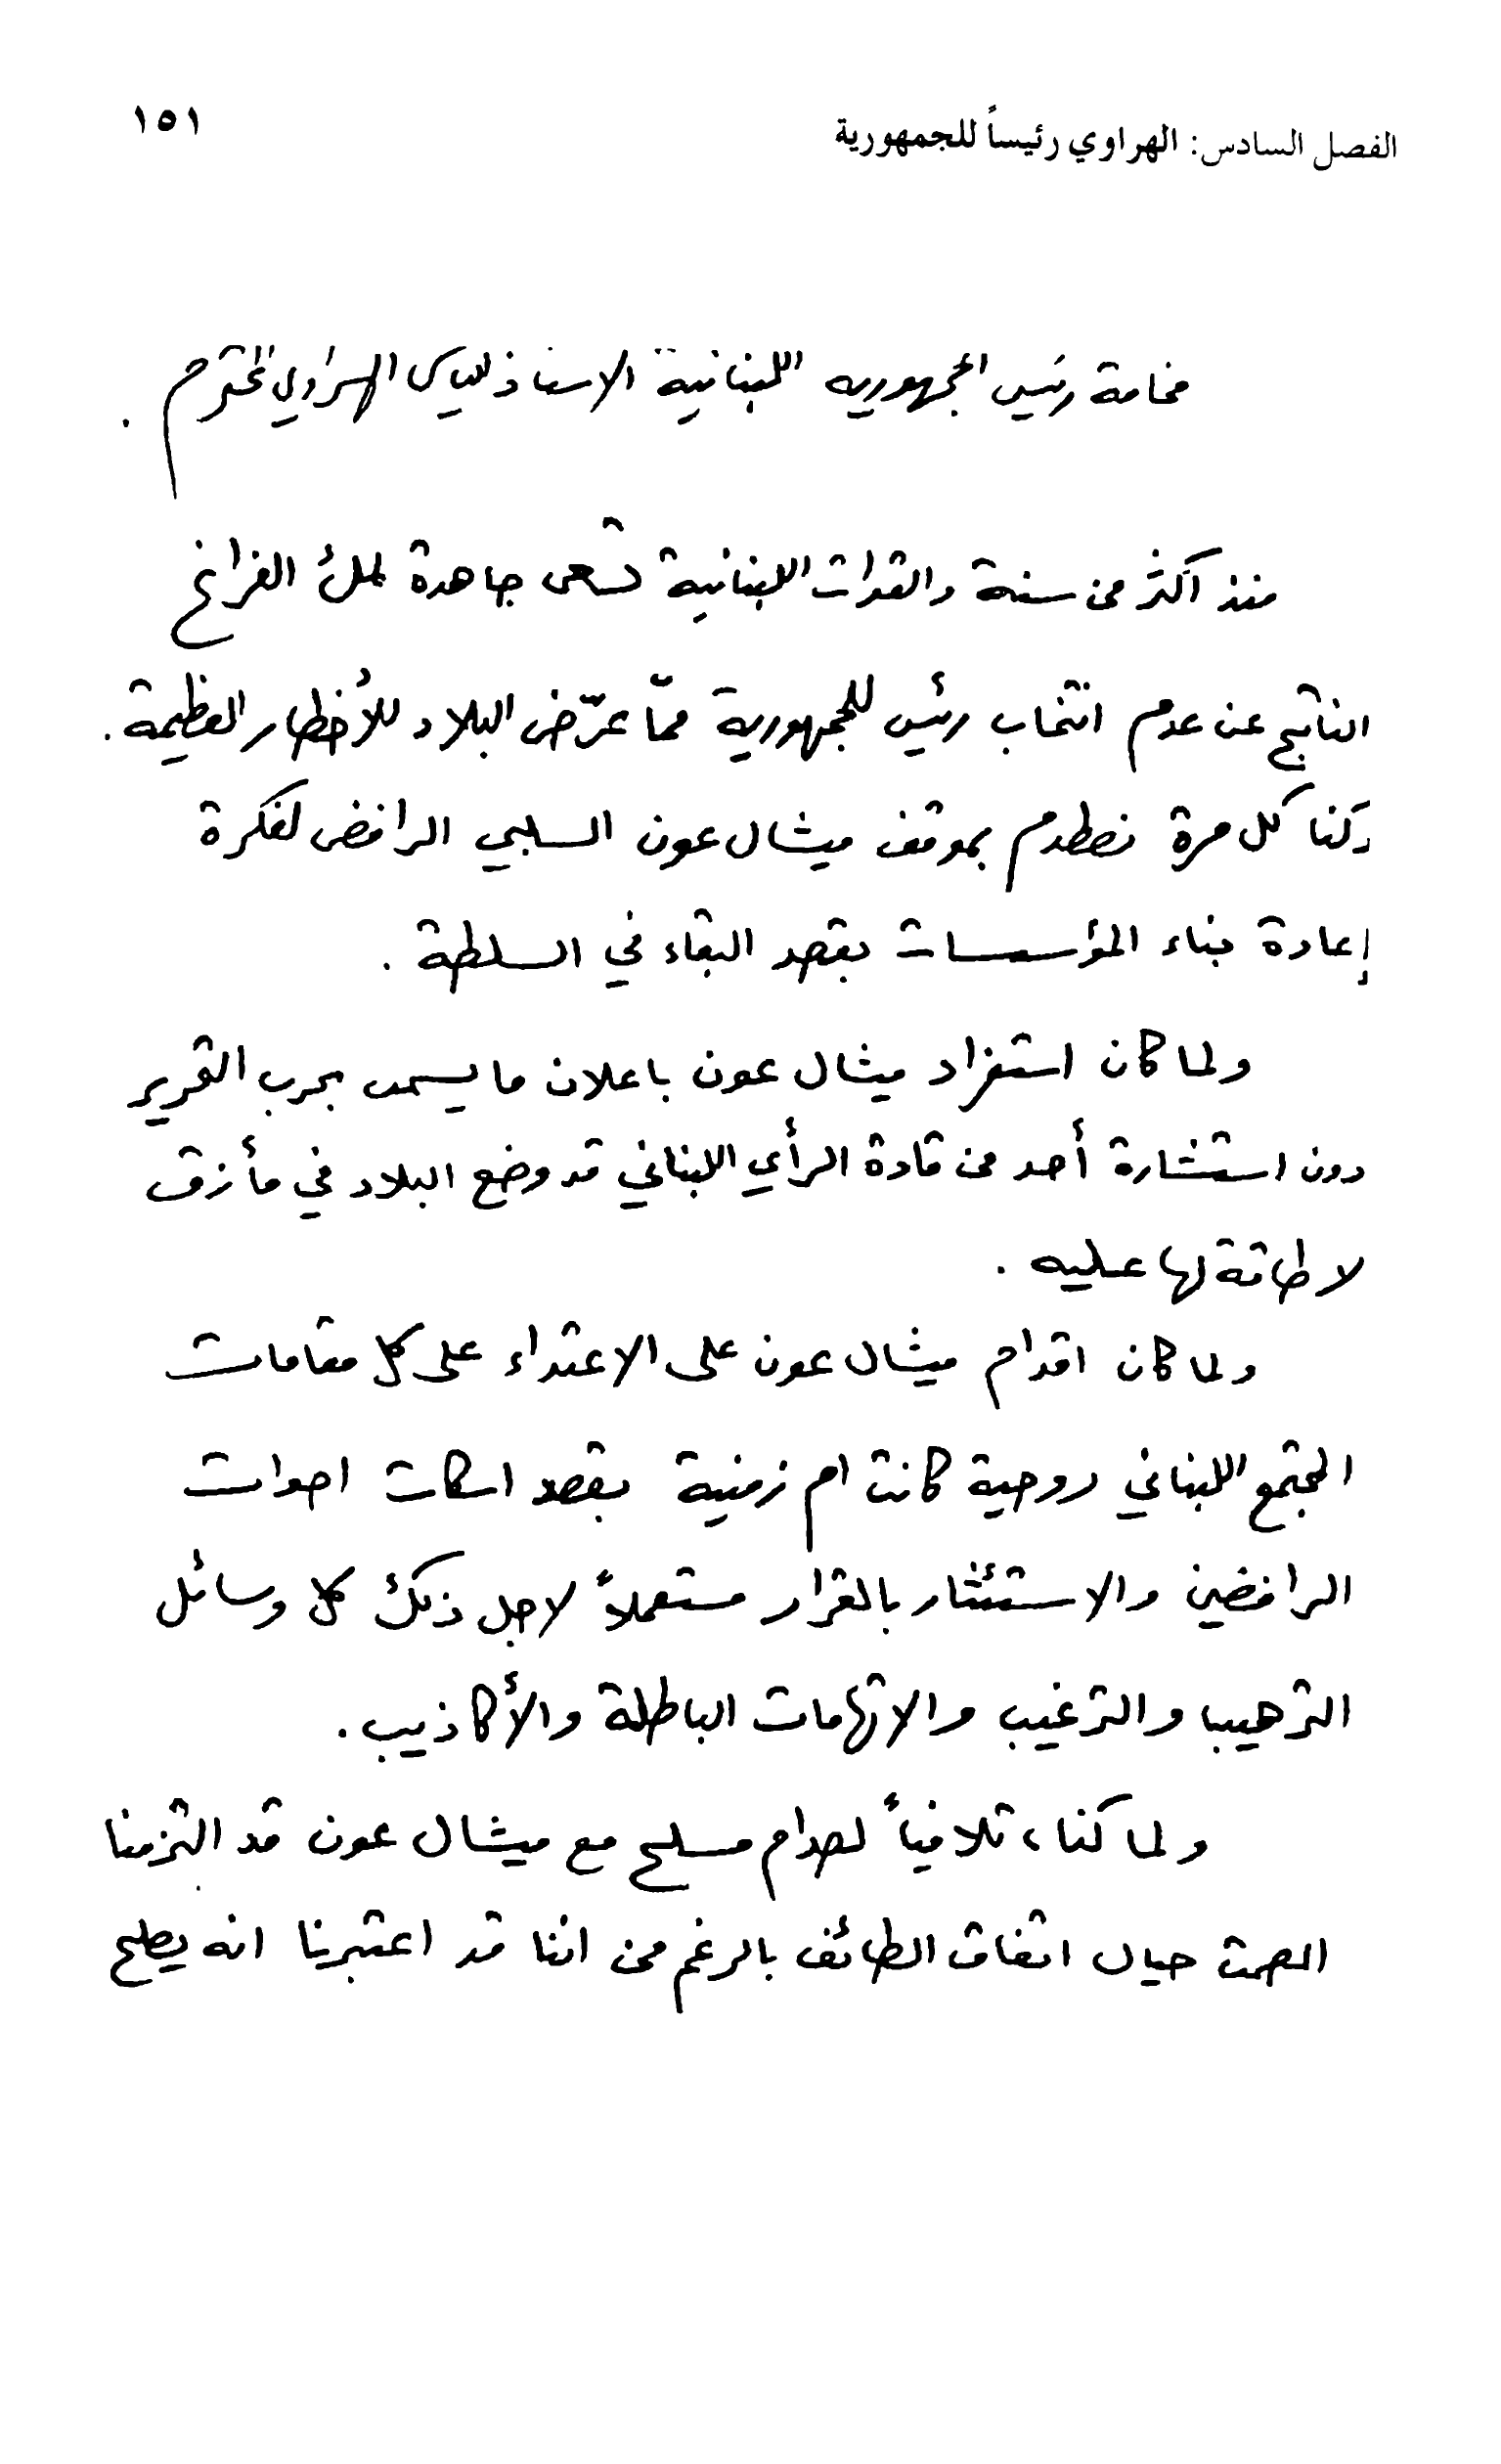 الفصل السادس: الهراوي رئيساً للجمهورية
١٥١
فخامة رئيس الجمهورية اللبنانية الاستاذ الياس الهراوي المحترم .
منذ أكثر من سنة والقوات اللبنانية تسعى جاهدة لملئ الفراغ
الناتج عن عدم انتخاب رئيس للجمهورية ممّا عرّض البلاد للأخطار العظيمة .
وكنا كل مرة نصطدم بموقف ميشال عون السلبي الرافض لفكرة
إعادة بناء المؤسسات بقصد البقاء في السلطة .
ولما كان استفراد ميشال عون باعلان ما يسمى بحرب التحرير
دون استشارة أحد من قادة الرأي اللبناني قد وضع البلاد في مأزق
لا طاقة لها عليه .
ولما كان اقدام ميشال عون على الاعتداء على كل مقامات
المجتمع اللبناني روحية كانت ام زمنية بقصد اسكات اصوات
الرافضين والاستئثار بالقرار مستعملاً لاجل ذلك كل وسائل
الترهيب والترغيب والاتهامات الباطلة والأكاذيب .
ولما كنا، تلافياً لصدام مسلح مع ميشال عون قد التزمنا
الصمت حيال اتفاق الطائف بالرغم من اننا قد اعتبرنا انه يصلح